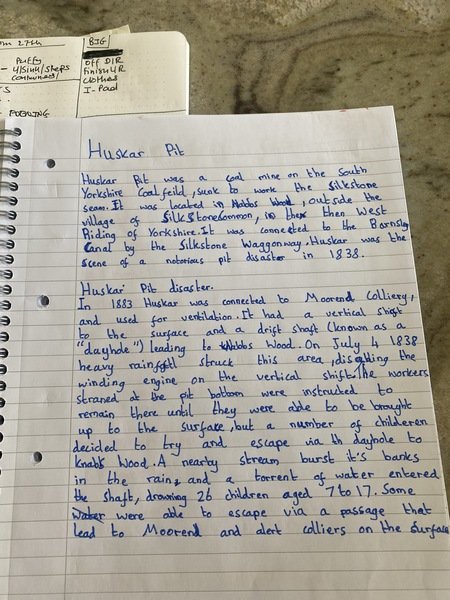 27th
BIG
Puffy
off DIR
- 4/Sink/Steps
Finish UR
clothes
I-Pad
EVENING
Huskar Pit
Huskar Pit was a coal mine on the South
Yorkshire Coalfeild, sunk to work the Silkstone
seam. It was located in Nabbs Wood, outside the
village of SilkStoneCommon, in the then West
Riding of Yorkshire. It was connected to the Barnsley
Canal by the Silkstone Waggonway. Huskar was the
scene of a notorious pit disaster in 1838.
Huskar Pit disaster.
In 1883 Huskar was connected to Moorend Colliery,
and used for ventilation. It had a vertical shaft
to the surface and a drift shaft (known as a
"dayhole") leading to Nabbs Wood. On July 4 1838
heavy rainfall struck this area, disabling the
winding engine on the vertical shift. The workers
straned at the pit bottom were instruted to
remain there until they were able to be brought
up to the surface, but a number of childeren
decided to try and escape via th dayhole to
Knabbs Wood. A nearby stream burst it's banks
in the rain, and a torrent of water entered
the shaft, drowning 26 children aged 7 to 17. Some
were able to escape via a passage that
lead to Moorend and alert colliers on the surface